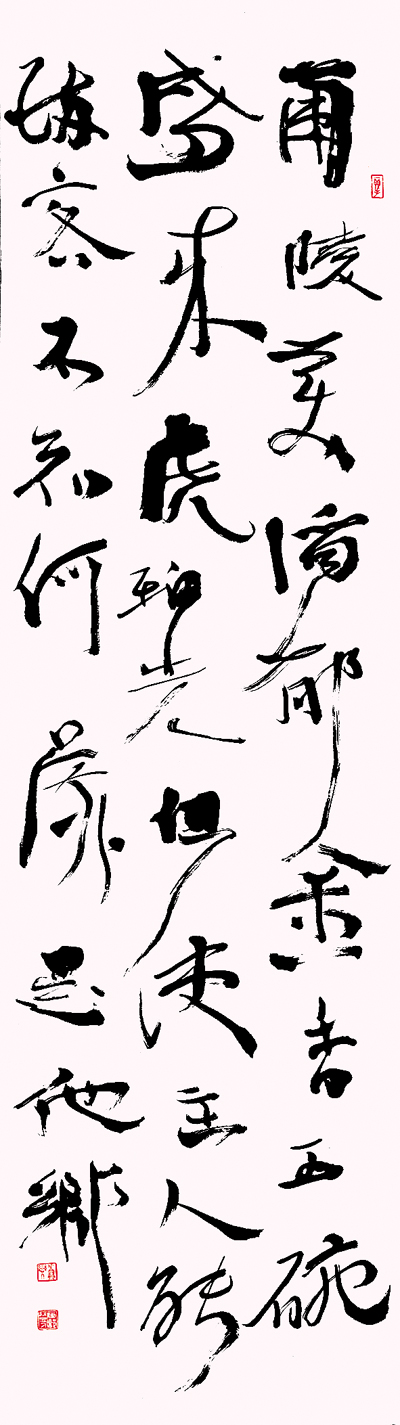 蘭陵美酒郁金香玉碗
盛来虎珀光但使主人能
醉客不知何處是他鄉